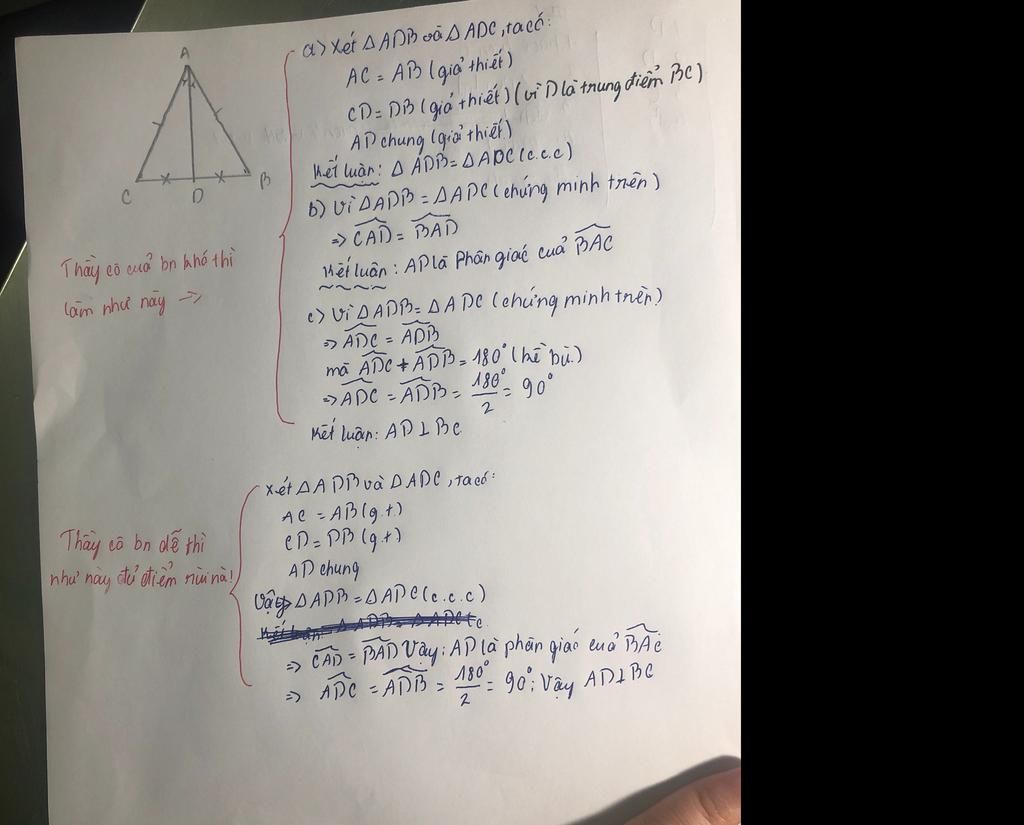 A
C
D
B
a) Xét △ADB và △ADC, ta có:
AC = AB (giả thiết)
CD = DB (giả thiết) (vì D là trung điểm BC)
AD chung (giả thiết)
Kết luận: △ADB = △ADC (c.c.c)
b) Vì △ADB = △ADC (chứng minh trên)
=> \widehat{CAD} = \widehat{BAD}
Kết luận: AD là Phân giác cuả \widehat{BAC}
c) Vì △ADB = △ADC (chứng minh trên)
=> \widehat{ADC} = \widehat{ADB}
mà \widehat{ADC} + \widehat{ADB} = 180° (kề bù)
=> \widehat{ADC} = \widehat{ADB} = 180°/2 = 90°
Kết luận: AD ⊥ BC
Thầy cô cuả bn khó thì
làm như này ->
Xét △ADB và △ADC, ta có:
AC = AB (g.t)
CD = DB (g.t)
AD chung
Vậy △ADB = △ADC (c.c.c)
=> \widehat{CAD} = \widehat{BAD} Vậy: AD là phân giác cuả \widehat{BAC}
=> \widehat{ADC} = \widehat{ADB} = 180°/2 = 90°; Vậy AD ⊥ BC
Thầy cô bn dễ thì
như này đủ điểm rùi nà!